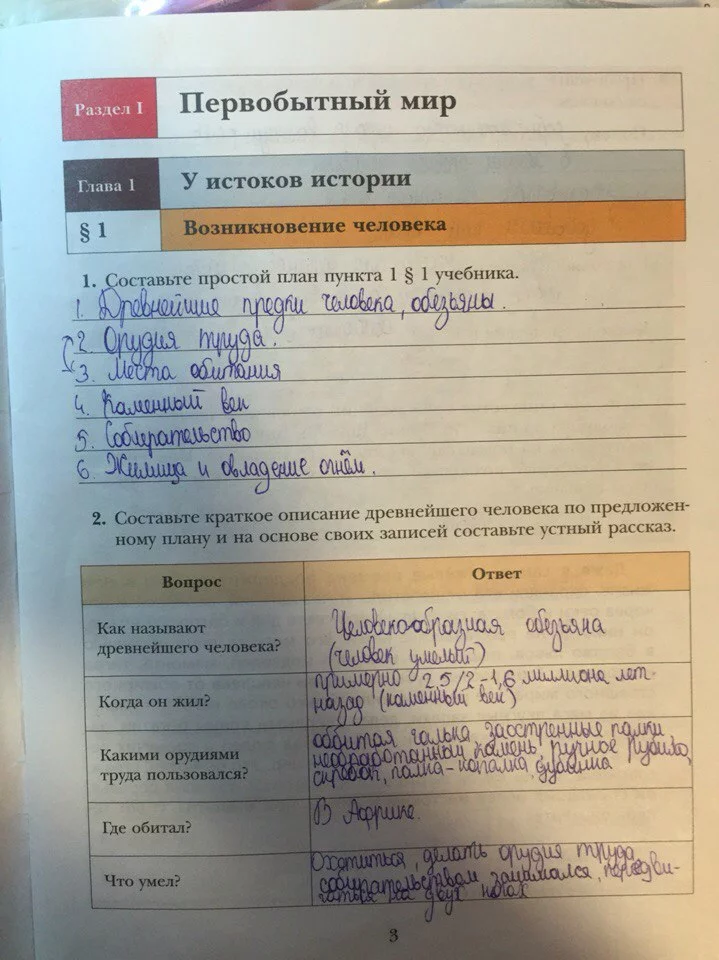 Раздел I
Первобытный мир
Глава 1
У истоков истории
§ 1
Возникновение человека
1. Составьте простой план пункта 1 § 1 учебника.
1. Древнейшие предки человека, обезьяны.
2. Орудия труда.
3. Места обитания
4. Каменный век
5. Собирательство
6. Жилища и овладение огнём.
2. Составьте краткое описание древнейшего человека по предложен-
ному плану и на основе своих записей составьте устный рассказ.
Вопрос
Ответ
Как называют
древнейшего человека?
Человекообразная обезьяна
(человек умелый)
Когда он жил?
примерно 2 5/2-1,6 миллиона лет
назад (каменный век)
Какими орудиями
труда пользовался?
оббитая галька, заостренные палки,
необработанный камень, ручное рубило,
скребок, палка-копалка, дубинка
Где обитал?
В Африке.
Что умел?
Охотиться, делать орудия труда,
собирательством занимался, передви-
гаться на двух ногах
3